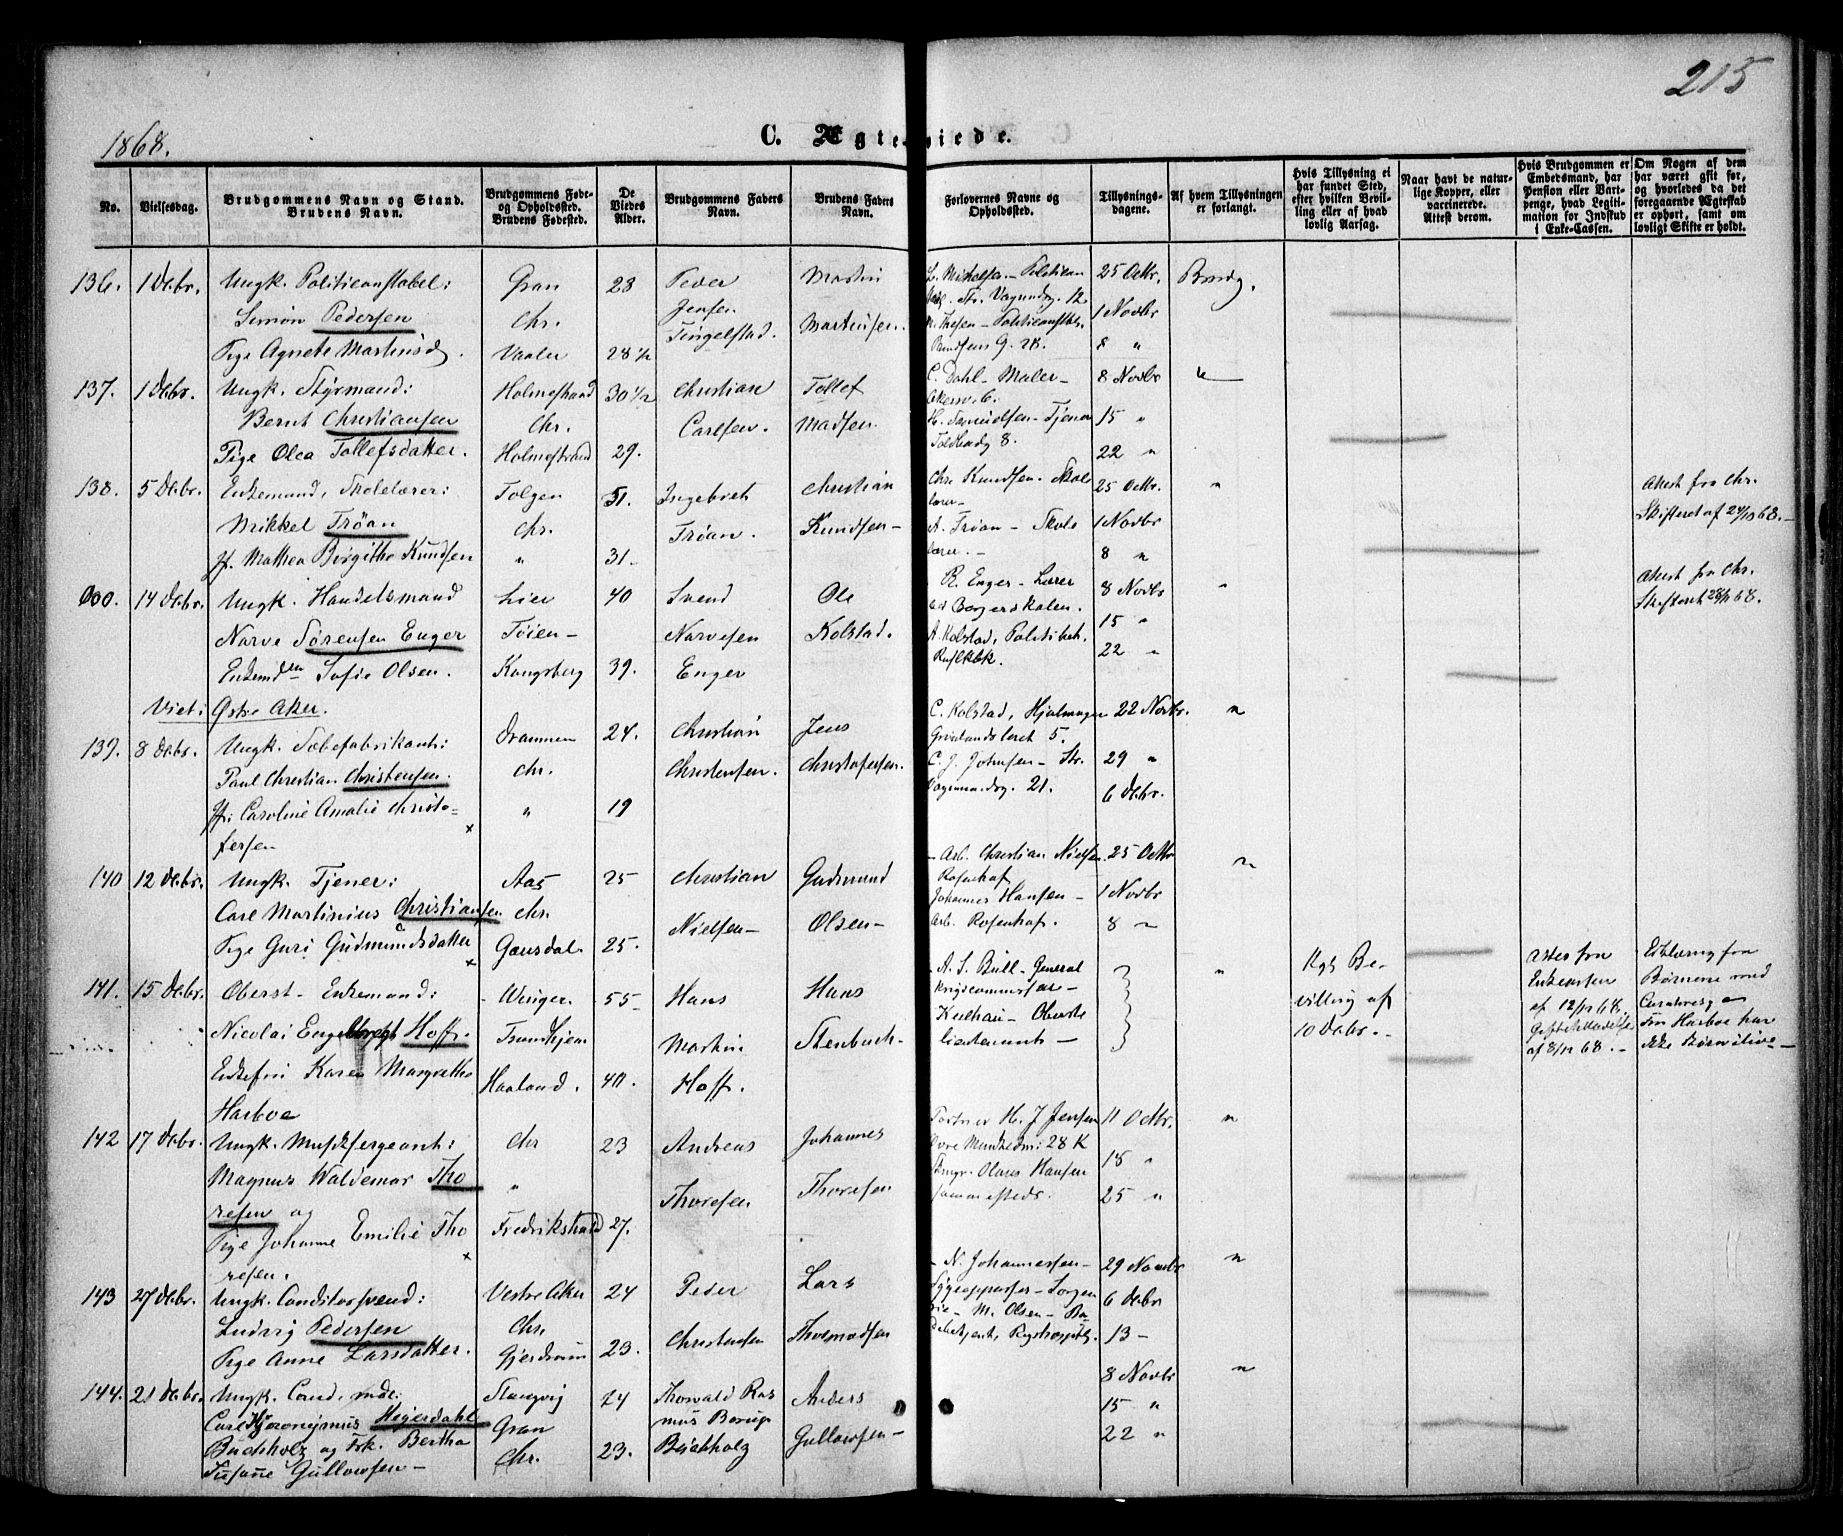 215
1868.
C. Ægteviede.
No.
Vielsesdag.
Brudgommens Navn og Stand.
Brudens Navn.
Brudgommens Føde-
og Opholdssted.
Brudens Fødested.
De
Viedes
Alder.
Brudgommens Faders
Navn.
Brudens Faders
Navn.
Forlovernes Navne og
Opholdssted.
Tillysnings-
dagene.
Af hvem Tillysningen
er forlangt.
Hvis Tillysning ei
har fundet Sted,
efter hvilken Bevil-
ling eller af hvad
lovlig Aarsag.
Naar havt de natur-
lige Kopper, eller
vaccinerede.
Attest derom.
Hvis Brudgommen er
Embedsmand, har
Pension eller Vart-
penge, hvad Legiti-
mation for Indskud
i Enke-Cassen.
Om Nogen af dem
har været gift før,
og hvorledes da det
foregaaende Ægteskab
er ophørt, samt om
lovligt Skifte er holdt.
136. 1 Debr. Ungk. Politieconstabel: Gran 28 Peder Martin 25 Octbr. Brudg.
Simon Pedersen Chr. Jensen Martinsen. 1 Novbr
Tingelstad.
Pige Agnete Martinsd. Vaaler 28 1/2 8 "
137. 1 Debr. Ungk. Styrmand: Holmestrand 30 1/2 Christian Tollef C. Dahl - Maler - 8 Novbr
Bernt Christiansen Chr. Carlsen. Madsen. H. Samuelsen - Tjener 15 "
Pige Olea Tollefsdatter. Holmestrand 29. Toldbodg 8. 22 "
138. 5 Debr. Enkemand, Skolelærer: Tolgen 31. Ingebret Christian Chr. Knudsen. Skole 25 Octbr. " Attest fra Chr.
lærer - Skifteret af 24/10 68. -
Mikkel Trøan Chr. Trøan. Knudsen - A. Trøan - Skole 1 Novbr
Jf. Mathea Birgithe Knudsen " 31. lærer. - 8 "
000. 14 Debr. Ungk. Handelsmand Lier 40 Svend Ole R. Enger - Lærer 8 Novbr " Attest fra Chr.
ved Borgerskolen. Skifteret 28/11 68.
Narve Sørensen Enger Tøien - Narvesen Kolstad. A. Kolstad, Politibet. 15 "
Enkemden Sofie Olsen. Kongsberg 39. Enger 22 "
Viet i Østre Aker.
139. 8 Debr. Ungk. Sæbefabrikant: Drammen 24. Christian Jens C. Kolstad, 22 Novbr. "
Grønlandsleret 5.
Paul Christian Christensen. Chr. Christensen. Christofersen. C. J. Johnsen - Str. 29 "
Jf: Caroline Amalie Christo- " 19 21. 6 Debr.
fersen
140 12 Debr. Ungk. Tjener: Aas 25 Christian Gudmund - Arb. Christian Nielsen. 25 Octbr "
Rosenhof
Carl Martinius Christiansen Chr. Nielsen - Olsen - Johannes Hansen - 1 Novbr
Arb. Rosenhof. 8 "
Pige Guri Gudmundsdatter Gausdal 25.
141. 15 Debr. Oberst - Enkemand: Vinger. 55 Hans Hans - A. S. Bull - General " Kgl Be- Attest fra Erklæring fra
Krigscommissær - villing af Enkecassen Børnene med
Nicolai Engelbregt Hoff. Trondhjem Martin Stenbuch - Keilhau - Oberst- 10 Debr. - af 12/12 68.
lieutenant - af 8/12 68. - ikke Børn ilive -
Enkefru Karen Margrethe Haaland. 40. Hoff.
Harboe
142 17 Debr. Ungk. Muskserseant: Chr 23 Andreas Johannes H. J. Jensen 11 Octbr. "
28 K
Magnus Waldemar Tho " Thoresen Thoresen Olaus Hansen 18 "
resen og sammesteds. 25 "
Pige Johanne Emilie Tho Fredrikstad 27.
resen.
143 27 Debr. Ungk. Conditorsvend: Vestre Aker 24 Peder Lars - N. Johannessen - 29 Novbr "
Ludvig Pedersen Chr. Christensen Thormodsen - M. Olsen - 6 Debr
Pige Anne Larsdatter. Gjerdrum 23. 13 -
144. 21 Debr. Ungk. Cand. med: Slangvig 24 Thorvald Ras Anders 8 Novbr "
Carl Hjeronymus Heyerdahl Gran mus Borup Gullowsen - 15 "
Buchholz og Frk. Bertha Chr. 23. Buchholz 22 "
Susanne Gullowsen -